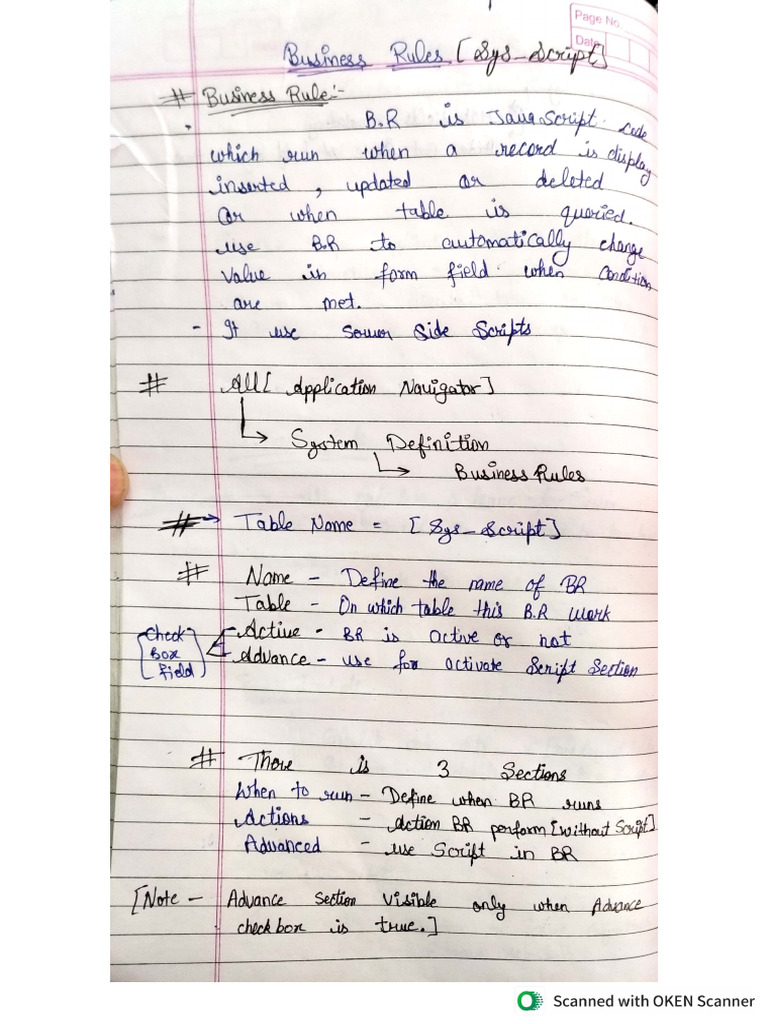 Page No.
Date
Business Rules [Sys_Script]
# Business Rule:-
B.R is JavaScript code
which run when a record is display
inserted, updated or deleted
or when table is queried.
use B.R to automatically change
value in form field when condition
are met.
- It use server side Scripts
# All [Application Navigator]
System Definition
Business Rules
# → Table Name = [Sys_Script]
# Name - Define the name of BR
Table - On which table this B.R work
Active - BR is active or not
Advance - use for activate Script Section
[Check
Box
field]
# There is 3 Sections
When to run - Define when BR runs
Actions - Action BR perform [without Script]
Advanced - use Script in BR
[Note - Advance section visible only when Advance
checkbox is true.]
Scanned with OKEN Scanner